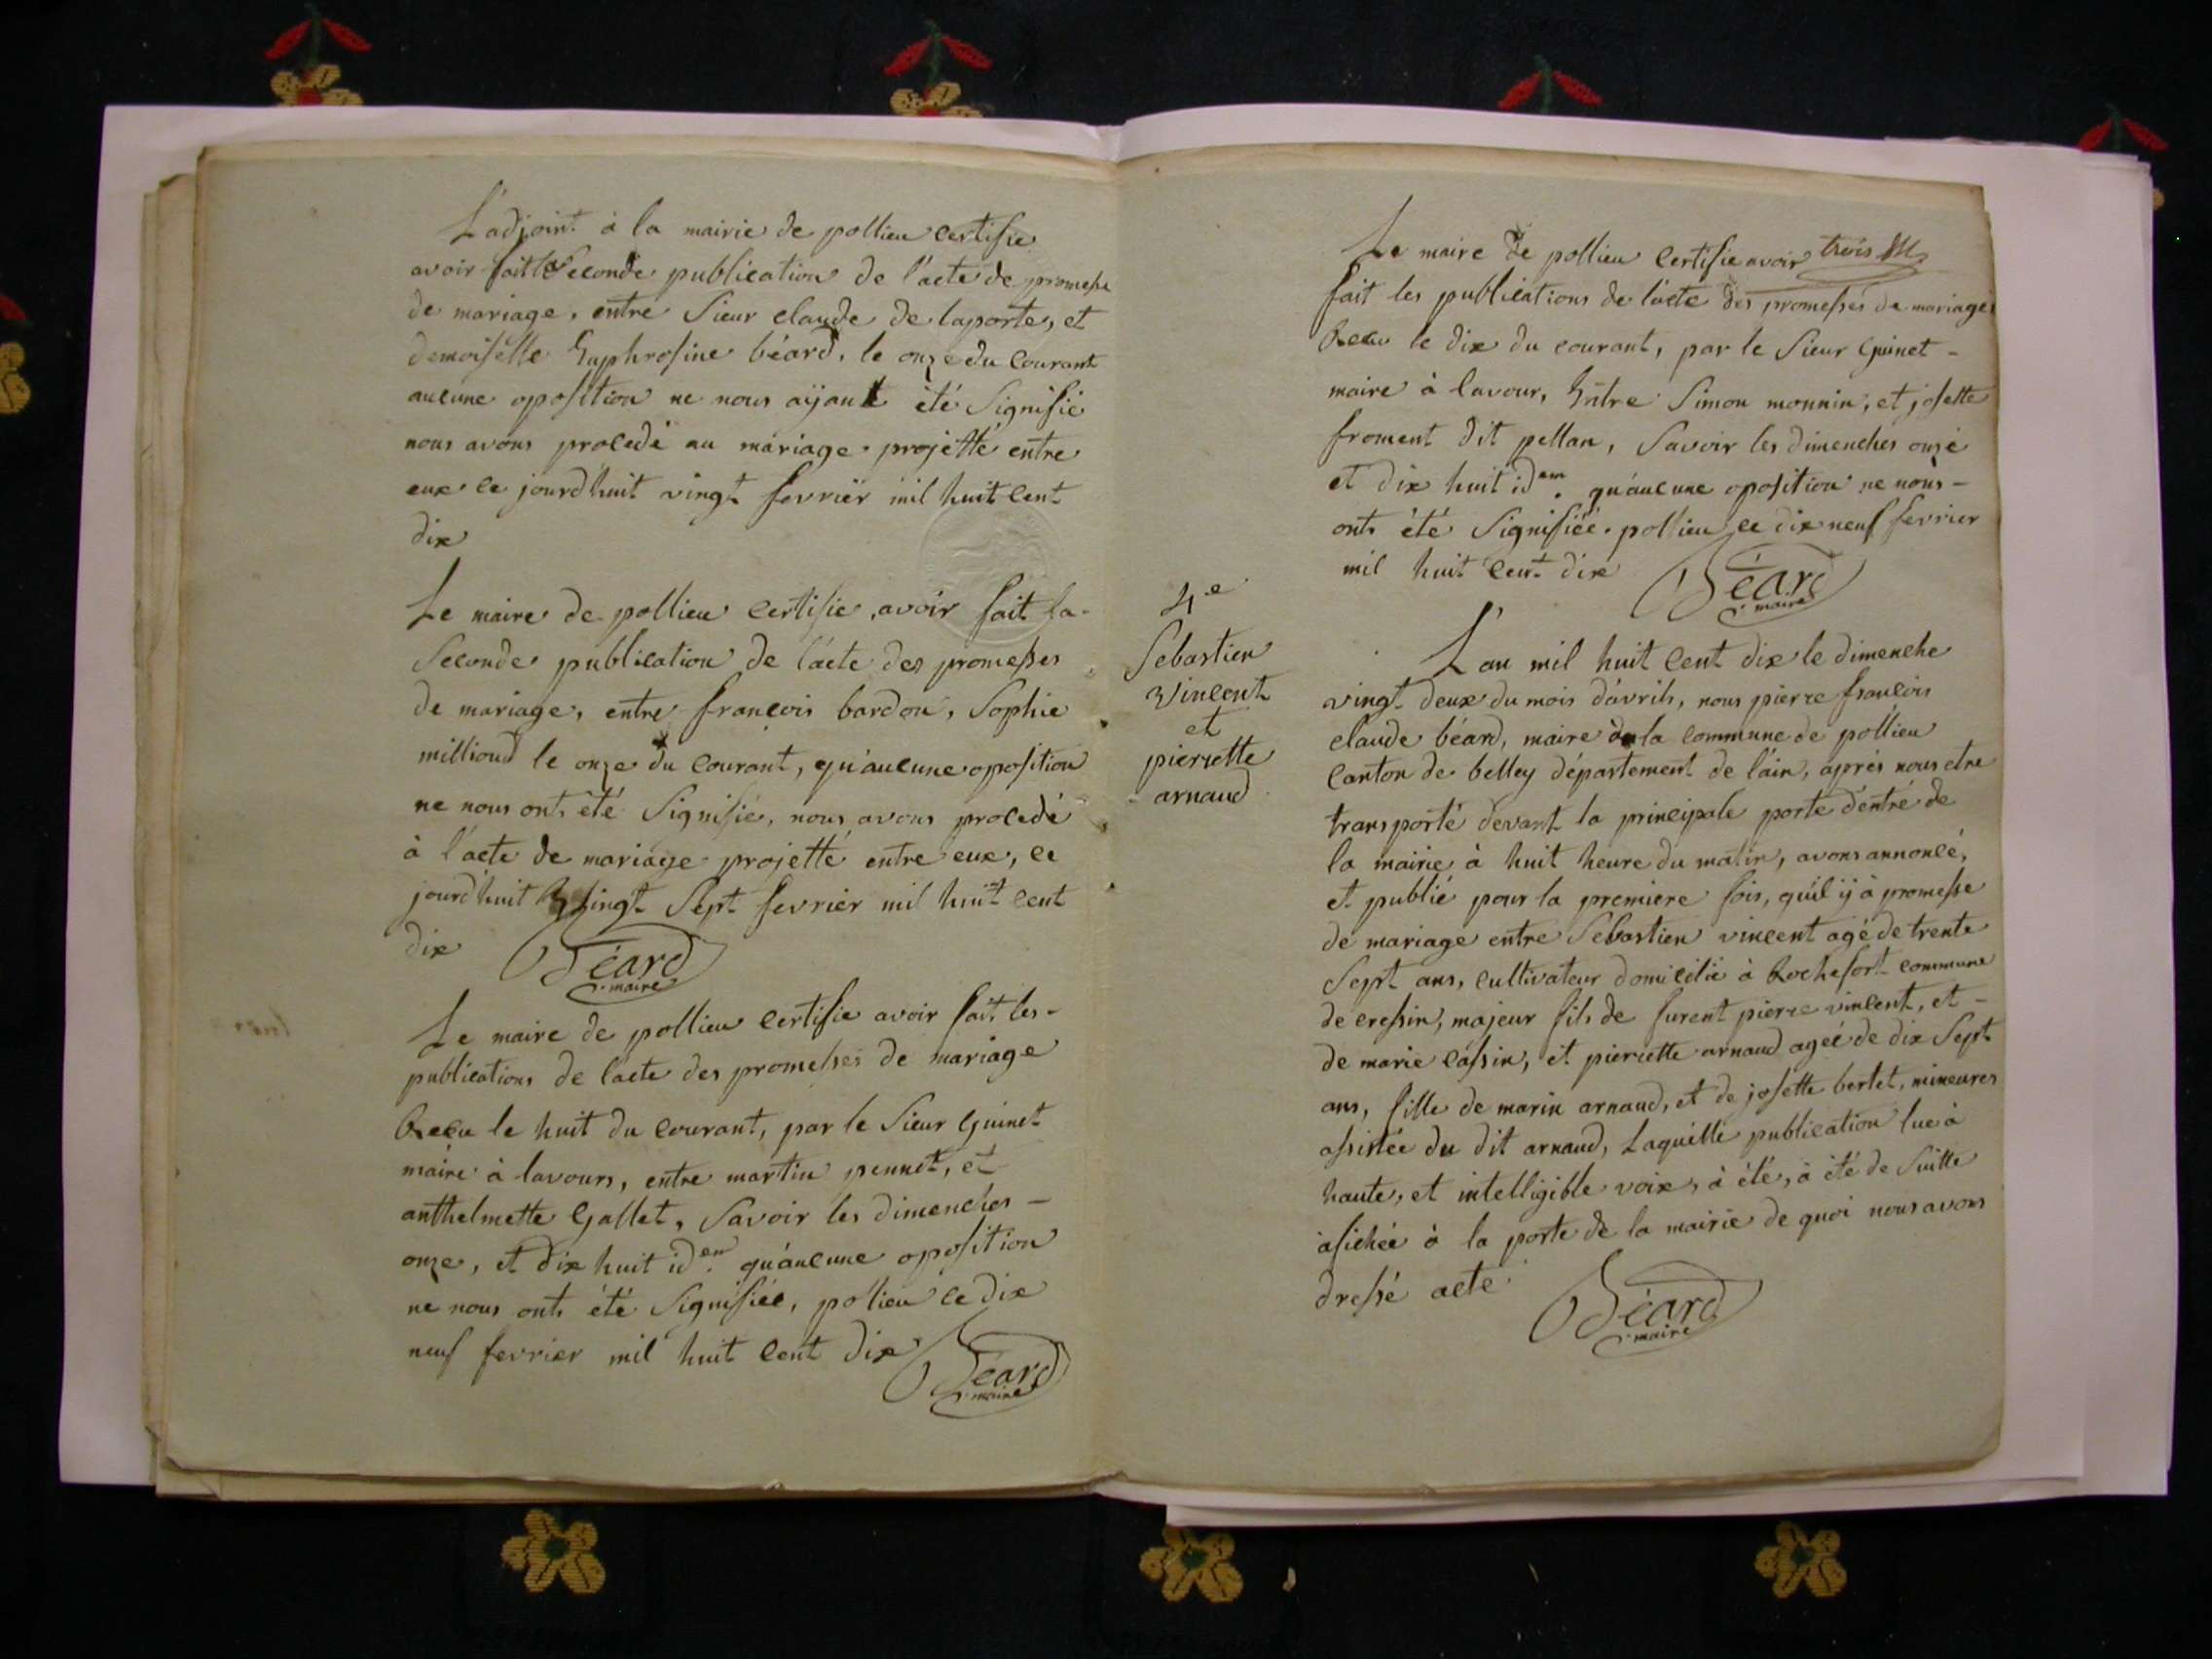 L'adjoint à la mairie de pollieu certifie
avoir fait la seconde publication de l'acte de promesse
de mariage, entre Sieur claude de laporte, et
demoiselle Euphrosine béard, le onze du courant
aucune oposition ne nous aÿant été signifié
nous avons procedé au mariage projetté entre
eux ce jourd'huit vingt fevrier mil huit cent
dix
Le maire de pollieu certifie avoir fait la-
seconde publication de l'acte des promesses
de mariage, entre françois bardon, Sophie
millioud le onze du courant, qu'aucune oposition
ne nous ont été signifié, nous avons procedé
à l'acte de mariage projetté entre eux, ce
jourd'huit vingt sept fevrier mil huit cent
dix Béard
maire
Le maire de pollieu certifie avoir fait les-
publications de lacte des promesses de mariage
Recu le huit du courant, par le Sieur Guinet
maire à lavours, entre martin pennet, et
anthelmette Gallet, Savoir les dimenches -
onze, et dix huit idem. qu'aucune oposition
ne nous ont été signifiée, polieu ce dix
neuf fevrier mil huit cent dix Béard
maire
trois
Le maire de pollieu certifie avoir
fait les publications de l'acte des promesses de mariages
Recu le dix du courant, par le Sieur Guinet -
maire à lavour, Entre Simon monnin, et josette
froment dit pellan, Savoir les dimenches onze
et dix huit idem. qu'aucune oposition ne nous -
ont été signifiée. pollieu ce dix neuf fevrier
mil huit cent dix Béard
maire
4e
Sebastien
Vincent
et
pierrette
arnaud
L'an mil huit cent dix le dimenche
vingt deux du mois d'avrils, nous pierre françois
claude béard, maire de la commune de pollieu
canton de belley département de l'ain, après nous etre
transporté devant la principale porte d'entré de
la mairie à huit heure du matin, avons annoncé,
et publié pour la premiere fois, qu'il ÿ à promesse
de mariage entre Sébastien vincent agé de trente
sept ans, cultivateur domicilié à Rochefort commune
de cressin, majeur fils de furent pierre vincent, et -
de marie cassin, et pierrette arnaud agée de dix sept
ans, fille de marin arnaud, et de josette berlet, mineures
assistée du dit arnaud, Laquelle publication lue à
haute, et intelligible voix, à été, à été de suitte
afichée à la porte de la mairie de quoi nous avons
dressé acte. Béard
maire